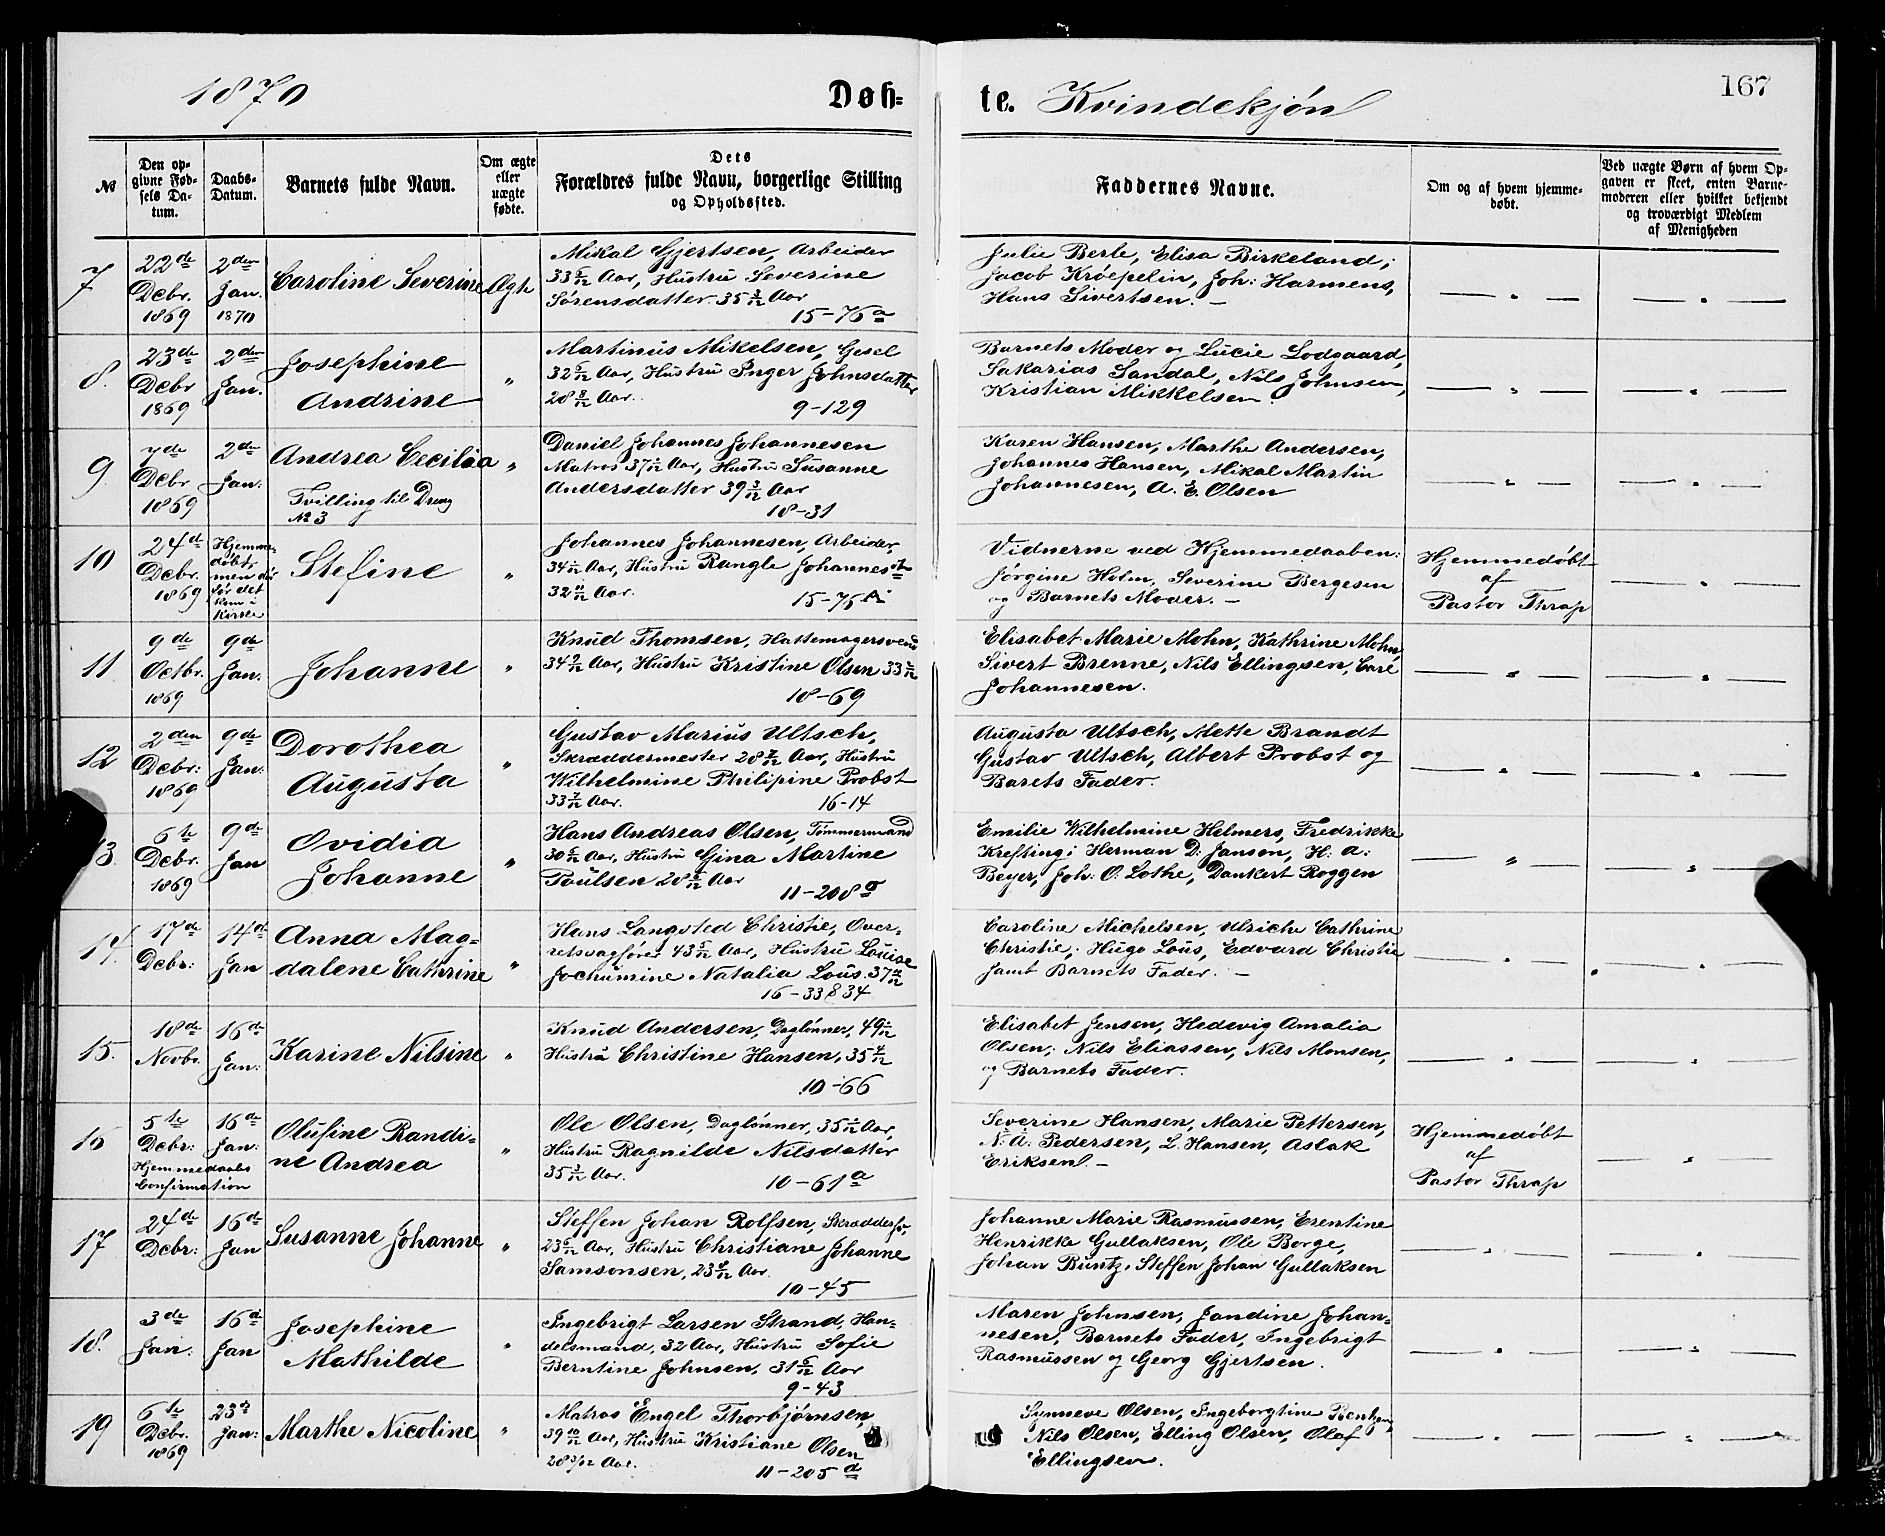 1870
Døb-
te. Kvindekjøn
167
№
Den op-
givne Fød-
sels Da-
tum.
Daabs-
Datum.
Barnets fulde Navn.
Om ægte
eller
uægte
fødte.
Dets
Forældres fulde Navn, borgerlige Stilling
og Opholdssted.
Faddernes Navne.
Om og af hvem hjemme-
døbt.
Ved uægte Børn af hvem Op-
gaven er skeet, enten Barne-
moderen eller hvilket bekjendt
og troværdigt Medlem
af Menigheden
7
22de
Debr.
1869
2den
Jan.
1870
Caroline Severine
Ægte
Mikal Gjertsen, Arbeider
33 Aar, Hustru Severine
Sørensdatter 35 3/12 Aar
15-76a
Julie Berle, Elisa Birkeland,
Jacob Krøepelin, Joh: Harmens,
Hans Sivertsen. -
8.
23de
Debr
1869
2den
Jan.
Josephine
Andrine
"
Martinus Mikelsen, Gesel
32 Aar, Hustru Inger Johnsdatter
28 8/12 Aar.
9-129
Barnets Moder og Lucie Lodgaard,
Sakarias Sandal, Nils Johnsen,
Kristian Mikkelsen.
9
7de
Debr
1869
2den
Jan:
Andrea Cecilia
Tvilling til Dreng
№ 3
"
Daniel Johannes Johannesen
Matros 37 Aar, Hustru Susanne
Andersdatter 39 3/12 Aar
18-31
Karen Hansen, Marthe Andersen,
Johannes Hansen, Mikal Martin
Johannesen, A. E. Olsen
10
24de
Debr.
1869
Hjemme-
døbt,
men dør
før det
kom i
Kirke
Stefine
"
Johannes Johannesen, Arbeider,
34 Aar, Hustru Rangle Johannesdtr
32 11/12 Aar.
15-75A
Vidnerne ved Hjemmedaaben:
Jørgine Holm, Severine Bergesen
og Barnets Moder. -
Hjemmedøbt
af
Pastor Thrap
11
9de
Octbr.
1869
9de
Jan.
Johanne
"
Knud Thomsen, Hattemagersvend
34 Aar, Hustru Kristine Olsen 33
18-69
Elisabet Marie Mohn, Kathrine Mohn
Sivert Brenne, Nils Ellingsen, Carl
Johannesen.
12
2den
Debr:
1869
9de
Jan:
Dorothea
Augusta
"
Gustav Marius Ultsch,
Skræddermester 28 7/12 Aar, Hustru
Wilhelmine Philipine Probst
33 7/12 Aar.
16-14
Augusta Ultsch, Mette Brandt
Gustav Ultsch, Albert Probst og
Barets Fader.
3.
6te
Debr.
1869
9de
Jan
Ovidia
Johanne
"
Hans Andreas Olsen, Tømmermand
30 Aar, Hustru Gina Martine
Poulsen 28 Aar
11-208
Emilie Wilhelmine Helmers, Fredrikke
Krefting; Herman D: Janson, H: A:
Beyer, Joh: O: Lothe, Dankert Roggen
14.
17de
Debr:
14de
Jan
Anna Mag-
dalene Cathrine
"
Hans Langsted Christie, Over-
retssagfører 43 5/12 Aar, Hustru Louise
Jochumine Natalia Lous. 37
16-33&34
Caroline Michelsen, Ulriche Cathrine
Christie; Hugo Lous, Edvard Christie
samt Barnets Fader. -
15.
18de
Novbr.
16de
Jan:
Karine Nilsine
"
Knud Andersen, Daglønner, 49
Hustru Christine Hansen, 35 4/12
10-66
Elisabet Jensen, Hedevig Amalia
Olsen; Nils Eliassen, Nils Monsen,
og Barnets Fader.
16
5te
Debr:
Hjemmedaabs
Confirmation
16de
Jan:
Olufine Randi-
ne Andrea
"
Ole Olsen, Daglønner, 35 Aar,
Hustru Ragnilde Nilsdatter
35 3/12 Aar.
10-61a
Severine Hansen, Marie Pettersen,
N: A: Pedersen, L. Hansen, Aslak
Eriksen. -
Hjemmedøbt
af
Pastor Thrap
17
24de
Debr:
16de
Jan
Susanne Johanne
"
Steffen Johan Rolfsen, Skrædder
23 Aar, Hustru Christiane Johanne
Samsonsen, 23 Aar.
10-45
Johanne Marie Rasmussen, Erentine
Henrikke Gullaksen, Ole Borge,
Johan Buntz, Steffen Johan Gullaksen
18.
3de
Jan:
16de
Jan
Josephine
Mathilde
"
Ingebrigt Larsen Strand, Han-
delsmand, 32 Aar, Hustru Sofie
Berntine Johnsen, 31 Aar
9-43
Maren Johnsen, Jandine Johan-
nesen, Barnets Fader, Ingebrigt
Rasmussen og Georg Gjertsen.
19
6te
Debr.
1869
23de
Jan:
Marthe Nicoline
"
Matros Engel Thorbjørnsen
39 10/12 Aar, Hustru Kristiane Olsen
28 Aar.
11-205d
Synneve Olsen, Ingeborgtine
Nils Olsen, Elling Olsen, Olaf
Ellingsen.